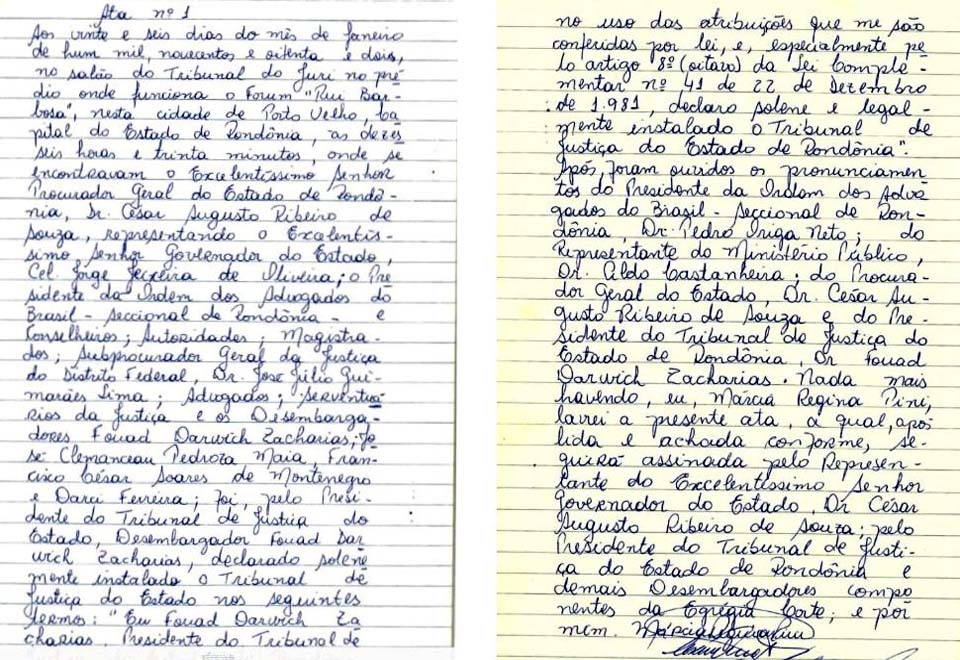 Ata nº 1
Aos vinte e seis dias do mês de Janeiro
de hum mil, novecentos e oitenta e dois,
no salão do Tribunal do Juri no pré
dio onde funciona o Forum "Rui Bar-
bosa", nesta cidade de Porto Velho, Ca
pital do Estado de Rondônia, as dezes
seis horas e trinta minutos, onde se
encontravam o Excelentíssimo Senhor
Procurador Geral do Estado de Rondô-
nia, Dr. César Augusto Ribeiro de
Souza, representando o Excelentís-
simo Senhor Governador do Estado,
Cel. Jorge Teixeira de Oliveira; o Pre
sidente da Ordem dos Advogados do
Brasil - Seccional de Rondônia - e
Conselheiros; Autoridades; Magistra-
dos; Subprocurador Geral da Justiça
do Distrito Federal, Dr. José Júlio Gui-
marães Lima; Advogados; Serventuá
rios da Justiça e os Desembarga-
dores Fouad Darwich Zacharias, Jo
sé Clemanceau Pedroza Maia, Fran-
cisco César Soares de Montenegro
e Darci Ferreira; foi, pelo Presi-
dente do Tribunal de Justiça do
Estado, Desembargador Fouad Dar
wich Zacharias, declarado solene
mente instalado o Tribunal de
Justiça do Estado nos seguintes
termos: "Eu Fouad Darwich Za
charias, Presidente do Tribunal de
no uso das atribuições que me são
conferidas por lei, e, especialmente pe
lo artigo 8º (oitavo) da Lei Comple-
mentar nº 41 de 22 de Dezembro
de 1.981, declaro solene e legal-
mente instalado o Tribunal de
Justiça do Estado de Rondônia".
Após, foram ouvidos os pronunciamen
tos do Presidente da Ordem dos Advo
gados do Brasil - Seccional de Ron-
dônia, Dr. Pedro Origa Neto; do
Representante do Ministério Público,
Dr. Aldo Castanheira; do Procura-
dor Geral do Estado, Dr. César Au-
gusto Ribeiro de Souza e do Pre-
sidente do Tribunal de Justiça do
Estado de Rondônia, Dr Fouad
Darwich Zacharias. Nada mais
havendo, eu, Márcia Regina Pini,
lavrei a presente ata, a qual, após
lida e achada conforme, se-
guirá assinada pelo Represen-
tante do Excelentíssimo Senhor
Governador do Estado, Dr César
Augusto Ribeiro de Souza; pelo
Presidente do Tribunal de Justi-
ça do Estado de Rondônia e
demais Desembargadores compo
nentes da Egrégia Corte; e por
mim. Márcia Regina Pini